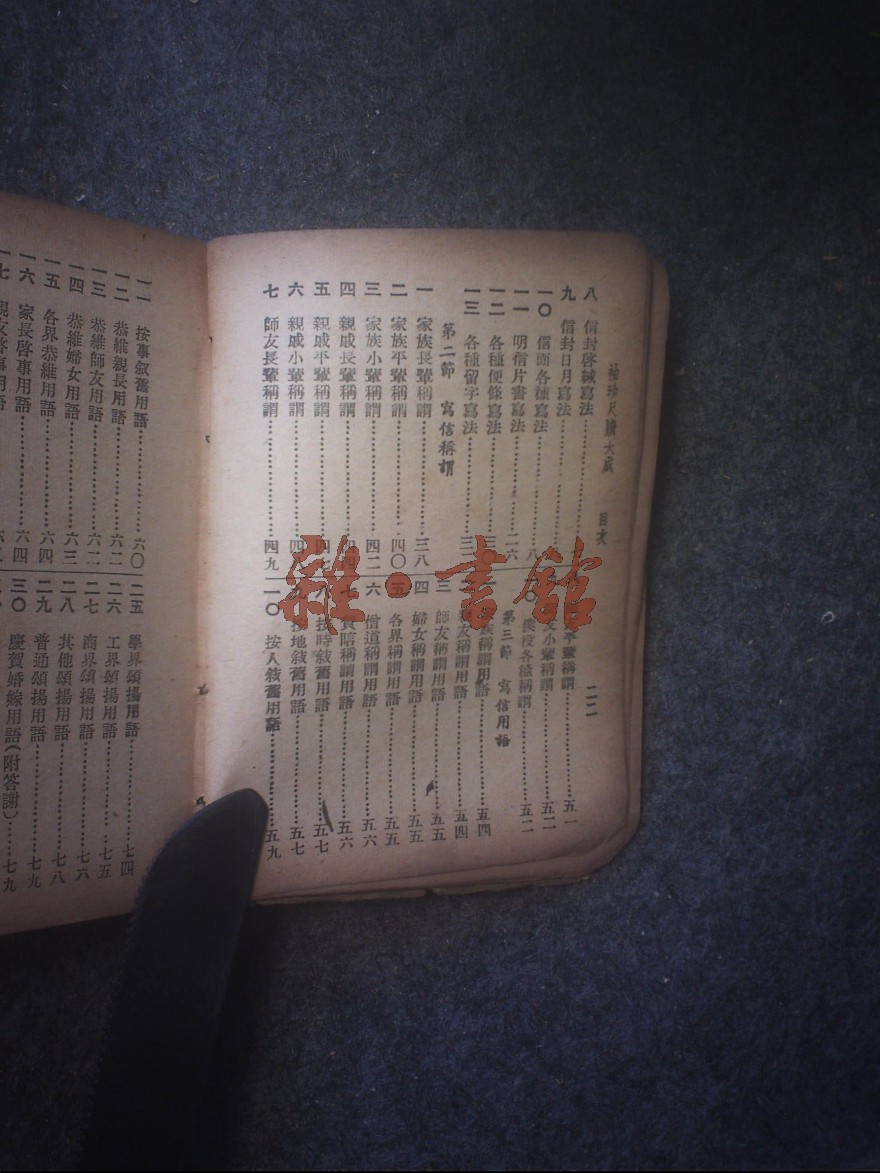 袖珍尺牘大成 目次 二二
八 信封啓緘寫法
九 信封日月寫法
一〇 信面各種寫法 八
一一 明信片書寫法 二六
一二 各種便條寫法 三
一三 各種留字寫法 三
第二節 寫信稱謂
一 家族長輩稱謂 三八
二 家族平輩稱謂 四〇
三 家族小輩稱謂 四二
四 親戚長輩稱謂 四四
五 親戚平輩稱謂 四七
六 親戚小輩稱謂 四
七 師友長輩稱謂 四九
平輩稱謂 五一
友小輩稱謂 五二
〇 僕役各種稱謂 五二
第三節 寫信用語
一 族稱謂用語 五四
二 友稱謂用語 五四
三 師友稱謂用語 五五
四 婦女稱謂用語 五五
五 各界稱謂用語 五五
六 僧道稱謂用語 五六
七 稱謂用語 五六
八 按時敍舊用語 五七
按地敍舊用語 五七
一〇 按人敍舊用語 五九
一一 按事敍舊用語 六〇
一二 恭維親長用語 六二
一三 恭維師友用語 六二
一四 恭維婦女用語 六三
一五 各界恭維用語 六四
一六 家長啓事用語 六四
一七 親友啓事用語 六
二五 學界頌揚用語 七四
二六 工界頌揚用語 七五
二七 商界頌揚用語 七六
二八 其他頌揚用語 七八
二九 普通頌揚用語 七九
三〇 慶賀婚嫁用語(附答謝) 七九
雜·書館